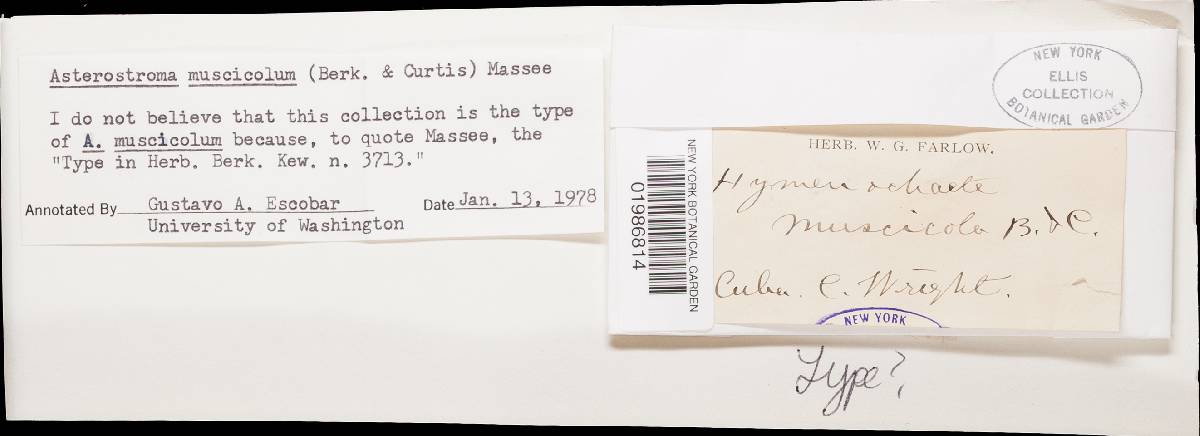 Asterostroma muscicolum (Berk. & Curtis) Massee
I do not believe that this collection is the type
of A. muscicolum because, to quote Massee, the
"Type in Herb. Berk. Kew. n. 3713."
Annotated By Gustavo A. Escobar Date Jan. 13, 1978
University of Washington
NEW YORK
ELLIS
COLLECTION
BOTANICAL GARDEN
NEW YORK BOTANICAL GARDEN
01986814
HERB. W. G. FARLOW.
Hymenochaete
muscicola B. & C.
Cuba. C. Wright.
NEW YORK
Type?